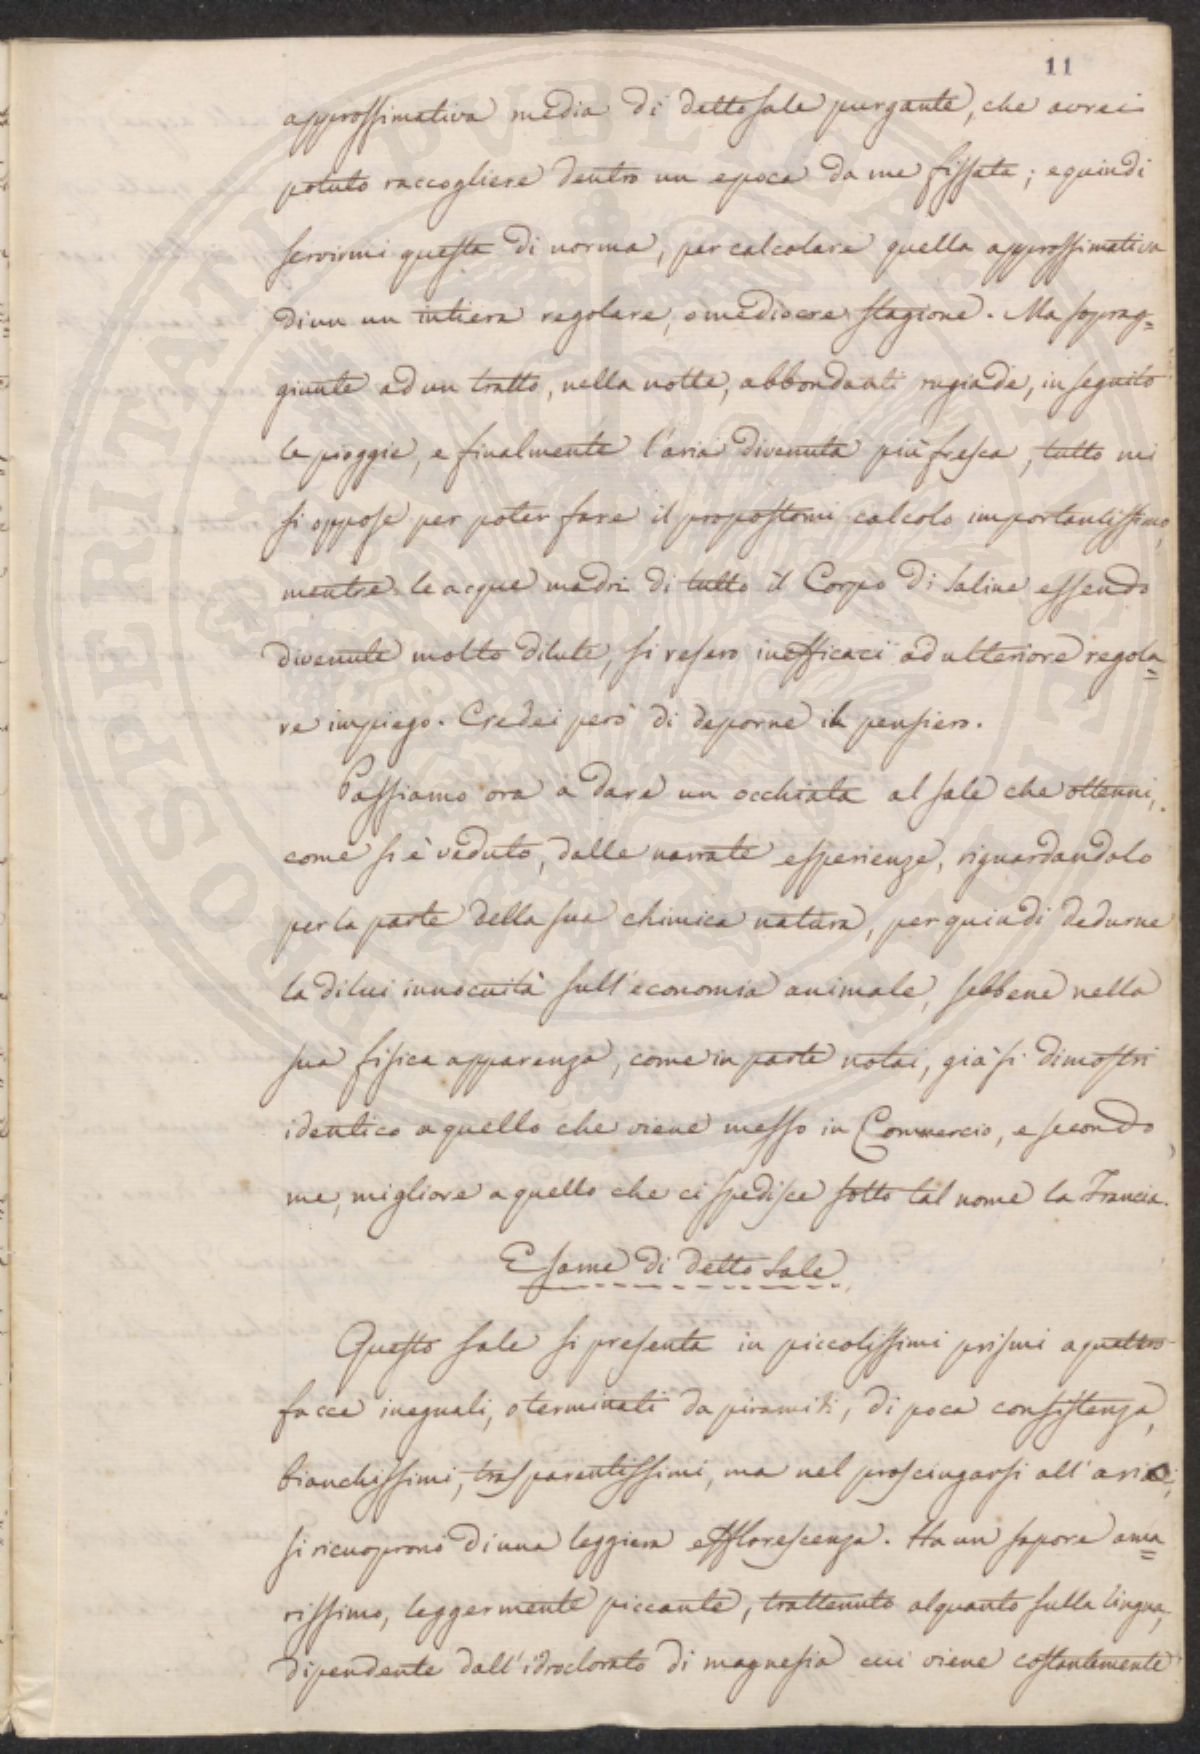 11
approssimativa media di detto sale purgante, che avrei
potuto raccogliere dentro un epoca da me fissata; e quindi
servirmi questa di norma, per calcolare quella approssimativa
di un un intiera regolare, o mediocre stagione. Ma soprag=
giunte ad un tratto, nella notte, abbondanti rugiade, in seguito
le pioggie, e finalmente l'aria divenuta più fresca, tutto mi
si oppose per poter fare il propostomi calcolo importantissimo,
mentre le acque madri di tutto il Corpo di Saline essendo
divenute molto dilute, si resero inefficaci ad ulteriore regola=
re impiego. Credei però di deporne il pensiero.
Passiamo ora a dare un occhiata al sale che ottenni,
come si è veduto, dalle narrate esperienze, riguardandolo
per la parte della sua chimica natura, per quindi dedurne
la di lui innocuità sull'economia animale, sebbene nella
sua fisica apparenza, come in parte notai, già si dimostri
identico a quello che viene messo in Commercio, e secondo
me, migliore a quello che ci spedisce sotto tal nome la Francia.
Esame di detto Sale
Questo sale si presenta in piccolissimi prismi a quattro
facce ineguali, o terminati da piramidi, di poca consistenza,
bianchissimi, trasparentissimi, ma nel prosciugarsi all'aria,
si ricuoprono di una leggiera efflorescenza. Ha un sapore ama=
rissimo, leggermente piccante, trattenuto alquanto sulla lingua,
dipendente dall'idroclorato di magnesia cui viene costantemente
PROSPERITATI PVBLICAE AVGENDAE